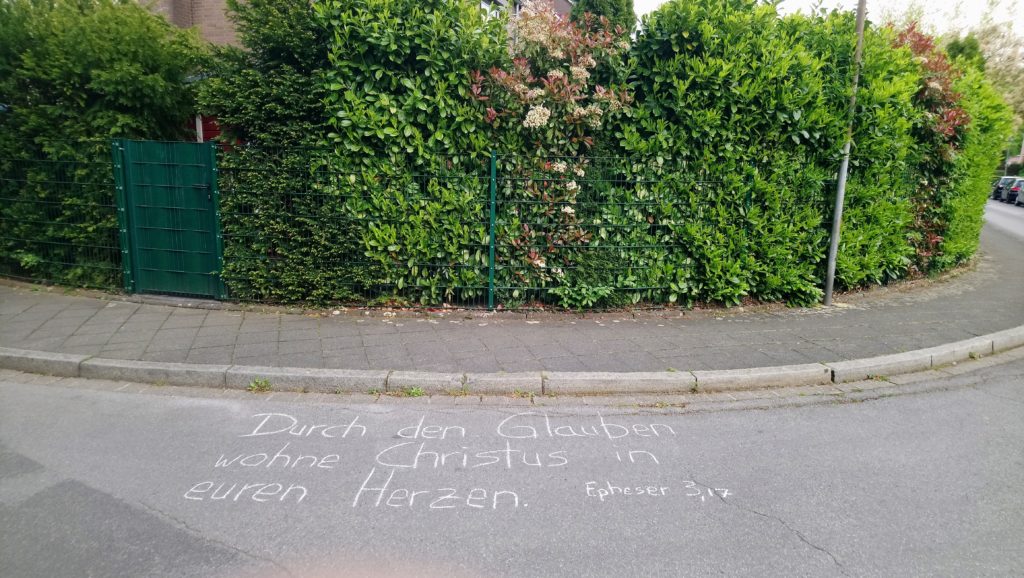 Durch den Glauben
wohne Christus in
euren Herzen. Epheser 3,17